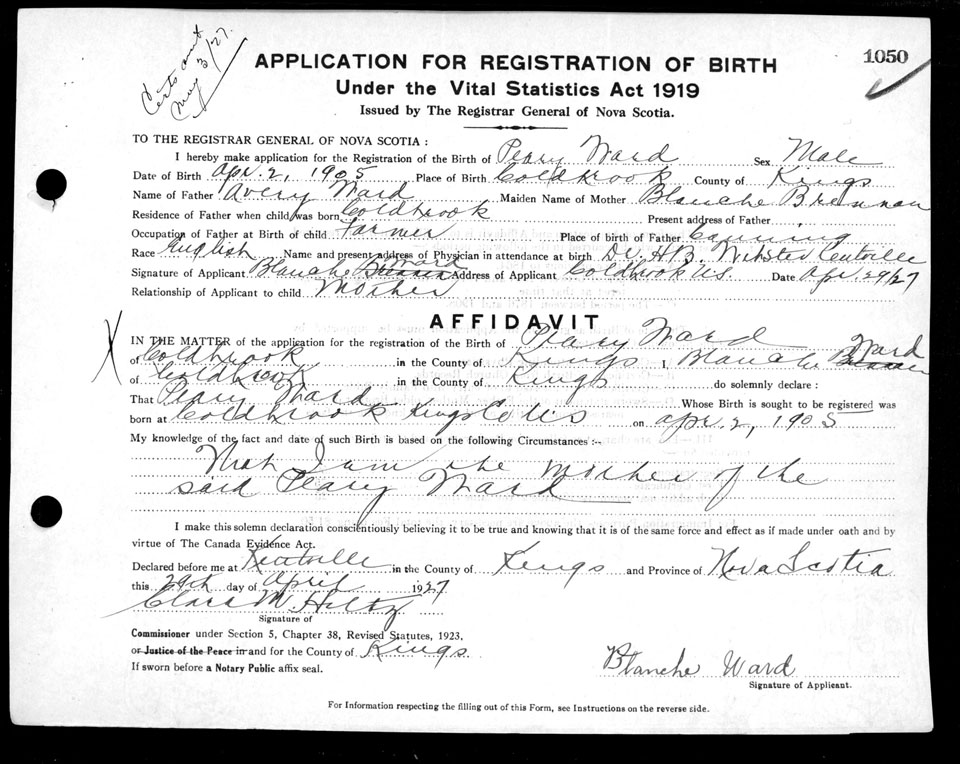 Certs sent
May 3/27.
1050
APPLICATION FOR REGISTRATION OF BIRTH
Under the Vital Statistics Act 1919
Issued by The Registrar General of Nova Scotia.
TO THE REGISTRAR GENERAL OF NOVA SCOTIA :
I hereby make application for the Registration of the Birth of Peary Ward Sex Male
Date of Birth Apr. 2, 1905 Place of Birth Coldbrook County of Kings
Name of Father Avery Ward Maiden Name of Mother Blanche Brennan
Residence of Father when child was born Coldbrook Present address of Father
Occupation of Father at Birth of child Farmer Place of birth of Father Canning
Race English Name and present address of Physician in attendance at birth Dr. H.B. Webster Kentville
Signature of Applicant Blanche Ward Address of Applicant Coldbrook N.S. Date Apr. 29/27
Relationship of Applicant to child Mother
AFFIDAVIT
IN THE MATTER of the application for the registration of the Birth of Peary Ward
of Coldbrook in the County of Kings I, Blanche Ward
of Coldbrook in the County of Kings do solemnly declare :
That Peary Ward Whose Birth is sought to be registered was
born at Coldbrook Kings Co N.S on Apr. 2, 1905
My knowledge of the fact and date of such Birth is based on the following Circumstances :-
That I am the mother of the
said Peary Ward
I make this solemn declaration conscientiously believing it to be true and knowing that it is of the same force and effect as if made under oath and by
virtue of The Canada Evidence Act.
Declared before me at Kentville in the County of Kings and Province of Nova Scotia
this 29th day of April 1927
Clara M. Hiltz
Signature of
Commissioner under Section 5, Chapter 38, Revised Statutes, 1923,
or Justice of the Peace in and for the County of Kings
If sworn before a Notary Public affix seal.
Blanche Ward
Signature of Applicant.
For Information respecting the filling out of this Form, see Instructions on the reverse side.